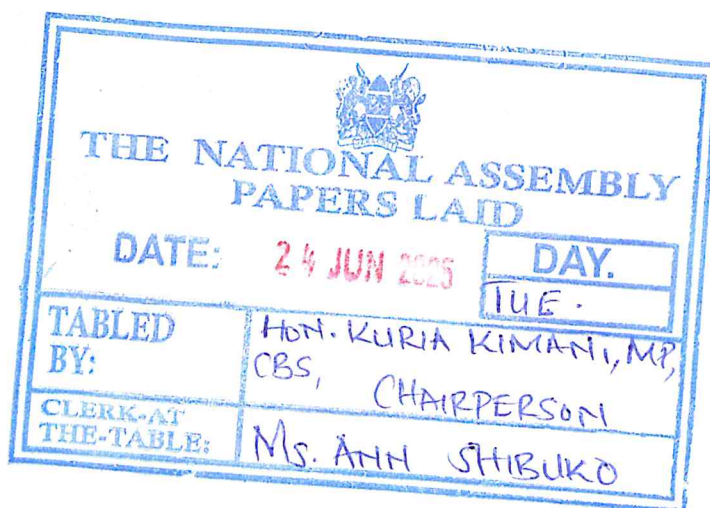 THE NATIONAL ASSEMBLY
PAPERS LAID
DATE: 24 JUN 2025 DAY.
TUE.
TABLED BY: HON. KURIA KIMANI, MP,
CBS, CHAIRPERSON
CLERK-AT THE-TABLE: Ms. ANN SHIBUKO